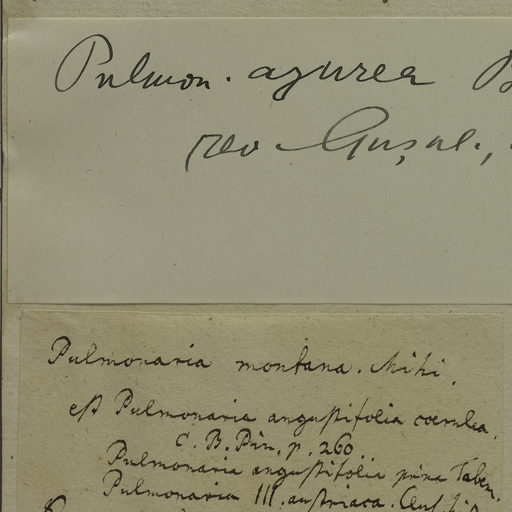 Pulmon. azurea B
Pulmonaria montana. Mihi.
est Pulmonaria angustifolia cœrulea.
C. B. Pin. p. 260.
Pulmonaria angustifolia prima Tabern.
Pulmonaria III. austriaca. Clus.